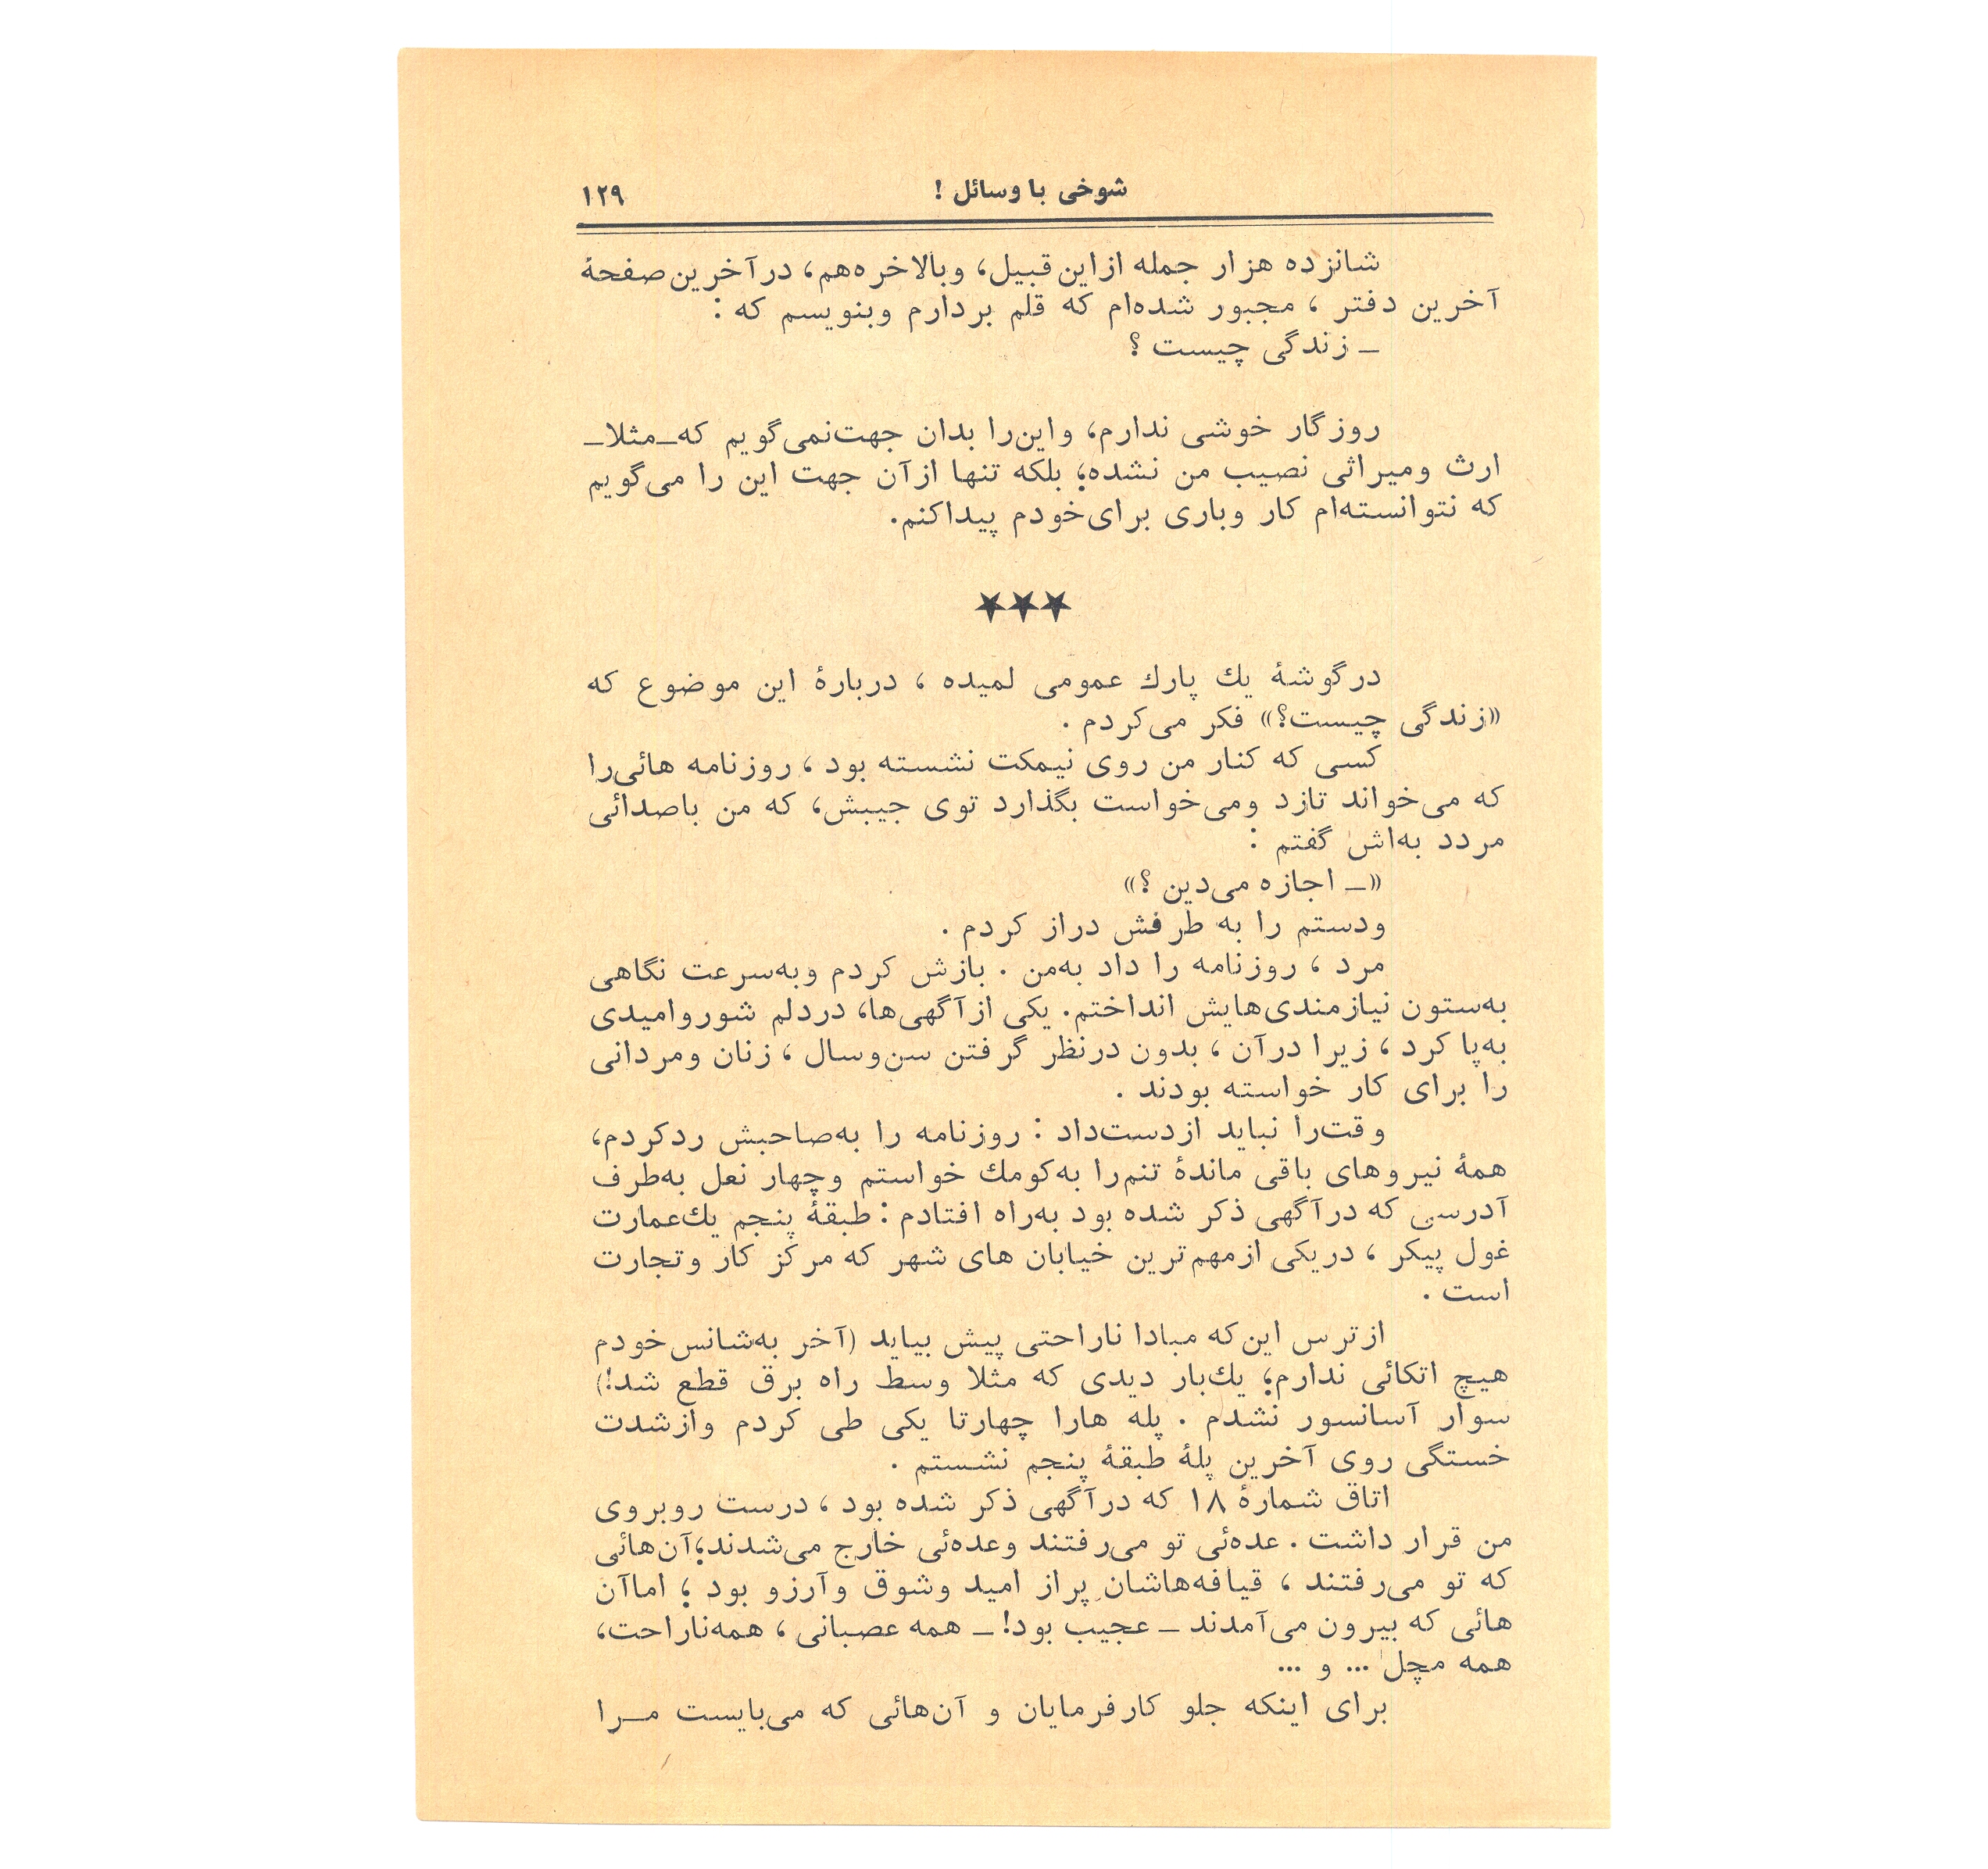 شوخی با وسائل !
۱۲۹
شانزده هزار جمله ازاین قبیل، وبالاخره‌هم، درآخرین صفحهٔ
آخرین دفتر ، مجبور شده‌ام که قلم بردارم وبنویسم که :
ـ زندگی چیست ؟
روزگار خوشی ندارم، واین‌را بدان جهت‌نمی‌گویم که‌ـ مثلا ـ
ارث ومیراثی نصیب من نشده؛ بلکه تنها ازآن جهت این را می‌گویم
که نتوانسته‌ام کار وباری برای‌خودم پیداکنم.
★★★
درگوشهٔ یك پارك عمومی لمیده ، دربارهٔ این موضوع که
«زندگی چیست؟» فکر می‌کردم .
کسی که کنار من روی نیمکت نشسته بود ، روزنامه هائی‌را
که می‌خواند تازد ومی‌خواست بگذارد توی جیبش، که من باصدائی
مردد به‌اش گفتم :
«ـ اجازه می‌دین ؟»
ودستم را به طرفش دراز کردم .
مرد ، روزنامه را داد به‌من . بازش کردم وبه‌سرعت نگاهی
به‌ستون نیازمندی‌هایش انداختم. یکی ازآگهی‌ها، دردلم شوروامیدی
به‌پا کرد ، زیرا درآن ، بدون درنظر گرفتن سن‌وسال ، زنان ومردانی
را برای کار خواسته بودند .
وقت‌را نباید ازدست‌داد : روزنامه را به‌صاحبش ردکردم،
همهٔ نیروهای باقی ماندهٔ تنم‌را به‌کومك خواستم وچهار نعل به‌طرف
آدرسی که درآگهی ذکر شده بود به‌راه افتادم : طبقهٔ پنجم یك‌عمارت
غول پیکر ، دریکی ازمهم‌ترین خیابان های شهر که مرکز کار وتجارت
است .
ازترس این‌که مبادا ناراحتی پیش بیاید (آخر به‌شانس‌خودم
هیچ اتکائی ندارم؛ یك‌بار دیدی که مثلا وسط راه برق قطع شد!)
سوار آسانسور نشدم . پله هارا چهارتا یکی طی کردم وازشدت
خستگی روی آخرین پلهٔ طبقهٔ پنجم نشستم .
اتاق شمارهٔ ۱۸ که درآگهی ذکر شده بود ، درست روبروی
من قرار داشت . عده‌ئی تو می‌رفتند وعده‌ئی خارج می‌شدند؛ آن‌هائی
که تو می‌رفتند ، قیافه‌هاشان پراز امید وشوق وآرزو بود ؛ اماآن
هائی که بیرون می‌آمدند ـ عجیب بود! ـ همه عصبانی ، همه‌ناراحت،
همه مچل ... و ...
برای اینکه جلو کارفرمایان و آن‌هائی که می‌بایست مـرا